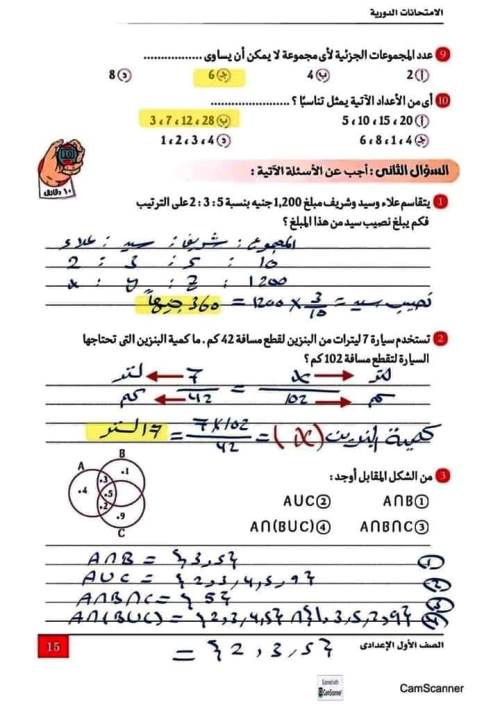 الامتحانات الدورية
9 عدد المجموعات الجزئية لأى مجموعة لا يمكن أن يساوى ..................
أ 2 ب 4 ج 6 د 8
10 أى من الأعداد الآتية يمثل تناسبًا ؟ ........................
أ 20 ، 15 ، 10 ، 5 ب 28 ، 12 ، 7 ، 3
ج 4 ، 1 ، 8 ، 6 د 4 ، 3 ، 2 ، 1
١٠ دقائق
السؤال الثانى : أجب عن الأسئلة الآتية :
1 يتقاسم علاء وسيد وشريف مبلغ 1,200 جنيه بنسبة 5 : 3 : 2 على الترتيب
فكم يبلغ نصيب سيد من هذا المبلغ ؟
علاء : سيد : شريف : المجموع
2 : 3 : 5 : 10
x : y : z : 1200
نصيب سيد = 3/10 × 1200 = 360 جنيهاً
2 تستخدم سيارة 7 ليترات من البنزين لقطع مسافة 42 كم . ما كمية البنزين التى تحتاجها
السيارة لتقطع مسافة 102 كم ؟
لتر ← 7 / 42 = x / 102 → لتر
كم ← → كم
كمية البنزين (x) = 7 × 102 / 42 = 17 لتر
3 من الشكل المقابل أوجد :
A B C
.4 .3 .1 .5 .2 .9
① A∩B ② A∪C
③ A∩B∩C ④ A∩(B∪C)
① A∩B = {3,5}
② A∪C = {2,3,4,5,9}
③ A∩B∩C = {5}
④ A∩(B∪C) = {2,3,4,5} ∩ {1,3,5,2,9}
= {2,3,5}
الصف الأول الإعدادى
15
Scanned with
CamScanner
CamScanner